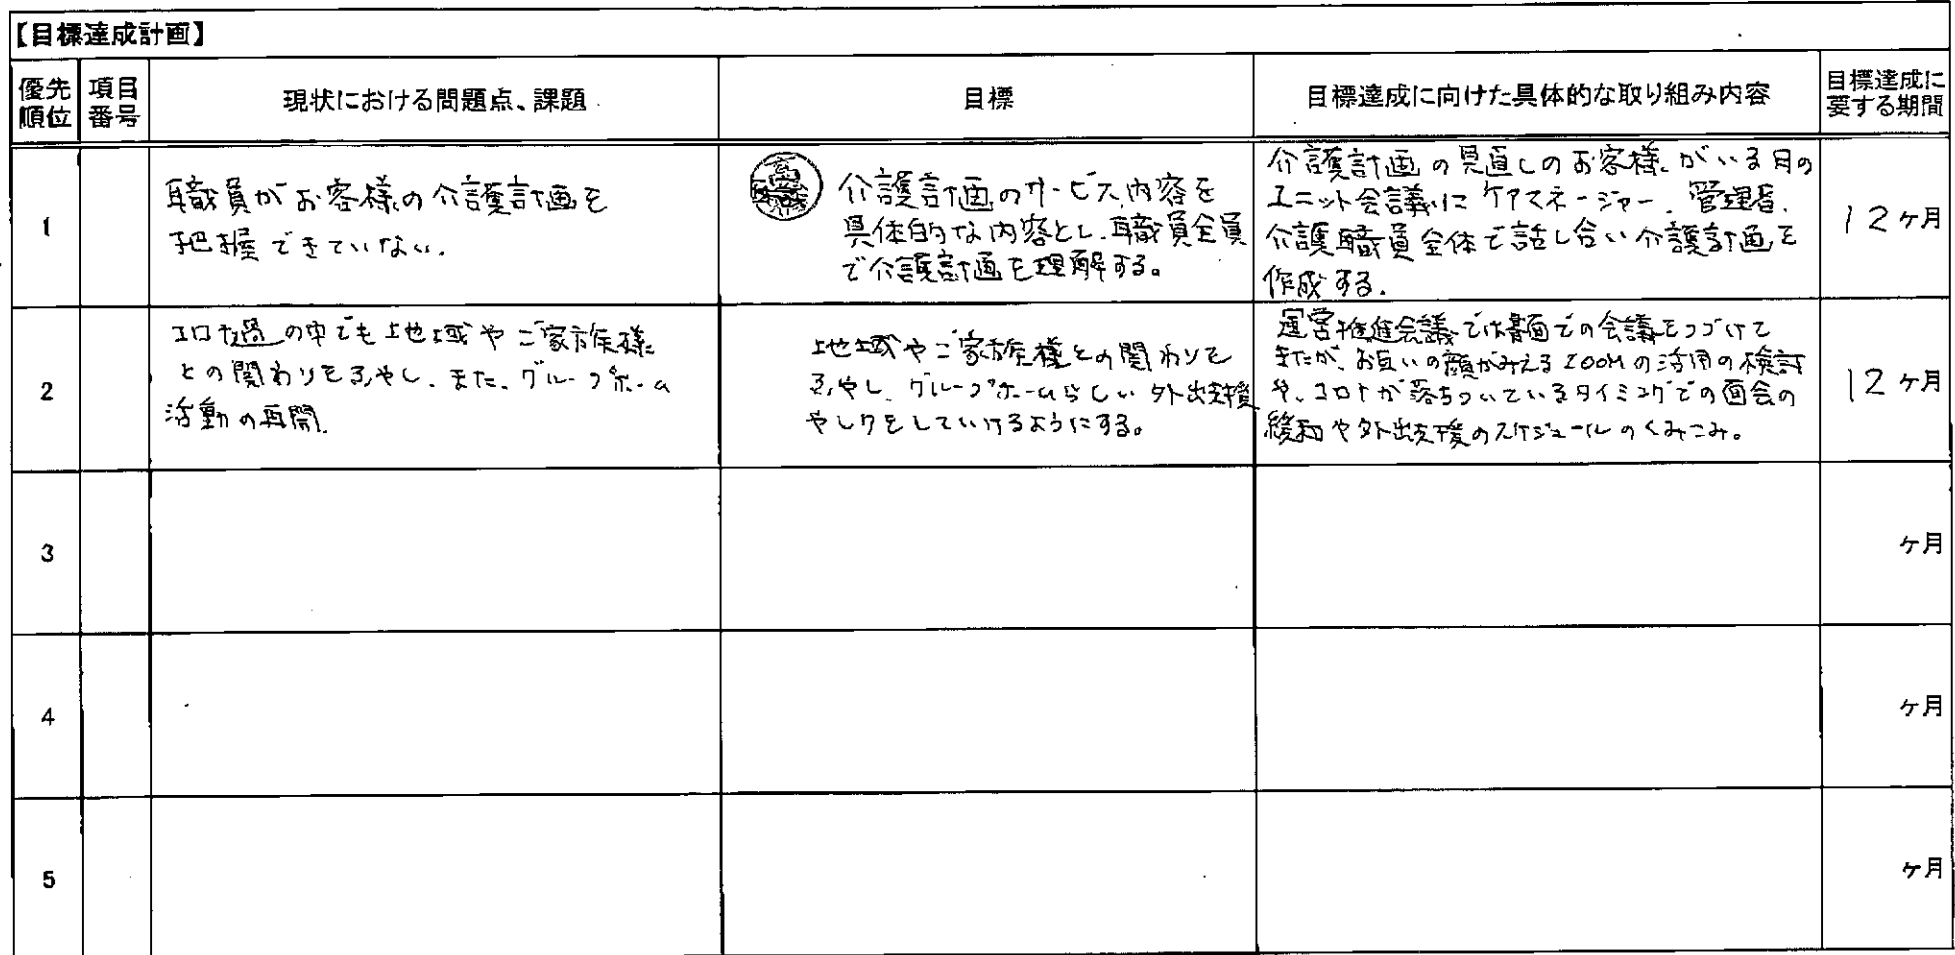 【目標達成計画】
優先順位 項目番号 現状における問題点、課題 目標 目標達成に向けた具体的な取り組み内容 目標達成に要する期間
1
職員がお客様の介護計画を
把握できていない。
介護計画のサービス内容を
具体的な内容とし、職員全員
で介護計画を理解する。
介護計画の見直しのお客様がいる月の
ユニット会議にケアマネージャー、管理者、
介護職員全体で話し合い介護計画を
作成する。
12ヶ月
2
コロナ過の中でも地域やご家族様
との関わりをふやし、また、グループホーム
活動の再開。
地域やご家族様との関わりを
ふやし、グループホームらしい外出支援
やレクをしていけるようにする。
運営推進会議では書面での会議をつづけて
きたが、お互いの顔がみえるZOOMの活用の検討
や、コロナが落ちついているタイミングでの面会の
緩和や外出支援のスケジュールのくみこみ。
12ヶ月
3
ヶ月
4
ヶ月
5
ヶ月